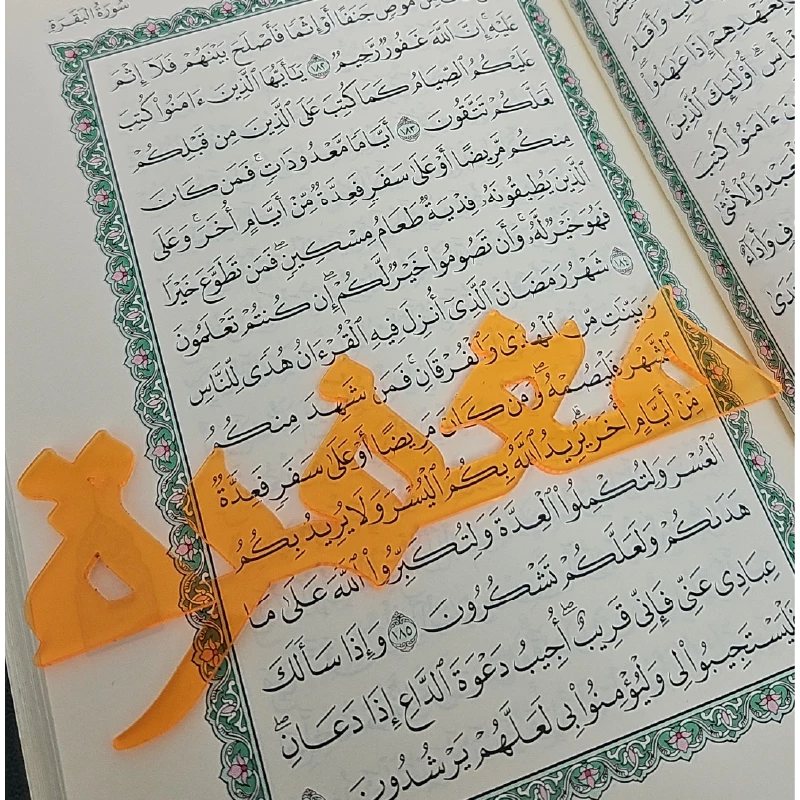 سُورَةُ البَقَرَةِ
مِن مُّوصٍ جَنَفًا أَوْ إِثْمًا فَأَصْلَحَ بَيْنَهُمْ فَلَا إِثْمَ
عَلَيْهِ إِنَّ ٱللَّهَ غَفُورٌ رَّحِيمٌ ١٨٢ يَٰٓأَيُّهَا ٱلَّذِينَ ءَامَنُوا۟ كُتِبَ
عَلَيْكُمُ ٱلصِّيَامُ كَمَا كُتِبَ عَلَى ٱلَّذِينَ مِن قَبْلِكُمْ
لَعَلَّكُمْ تَتَّقُونَ ١٨٣ أَيَّامًا مَّعْدُودَٰتٍ ۚ فَمَن كَانَ
مِنكُم مَّرِيضًا أَوْ عَلَىٰ سَفَرٍ فَعِدَّةٌ مِّنْ أَيَّامٍ أُخَرَ ۚ وَعَلَى
ٱلَّذِينَ يُطِيقُونَهُۥ فِدْيَةٌ طَعَامُ مِسْكِينٍ ۖ فَمَن تَطَوَّعَ خَيْرًا
فَهُوَ خَيْرٌ لَّهُۥ ۚ وَأَن تَصُومُوا۟ خَيْرٌ لَّكُمْ ۖ إِن كُنتُمْ تَعْلَمُونَ
١٨٤ شَهْرُ رَمَضَانَ ٱلَّذِىٓ أُنزِلَ فِيهِ ٱلْقُرْءَانُ هُدًى لِّلنَّاسِ
وَبَيِّنَٰتٍ مِّنَ ٱلْهُدَىٰ وَٱلْفُرْقَانِ ۚ فَمَن شَهِدَ مِنكُمُ
ٱلشَّهْرَ فَلْيَصُمْهُ ۖ وَمَن كَانَ مَرِيضًا أَوْ عَلَىٰ سَفَرٍ فَعِدَّةٌ
مِّنْ أَيَّامٍ أُخَرَ ۗ يُرِيدُ ٱللَّهُ بِكُمُ ٱلْيُسْرَ وَلَا يُرِيدُ بِكُمُ
ٱلْعُسْرَ وَلِتُكْمِلُوا۟ ٱلْعِدَّةَ وَلِتُكَبِّرُوا۟ ٱللَّهَ عَلَىٰ مَا
هَدَىٰكُمْ وَلَعَلَّكُمْ تَشْكُرُونَ ١٨٥ وَإِذَا سَأَلَكَ
عِبَادِى عَنِّى فَإِنِّى قَرِيبٌ ۖ أُجِيبُ دَعْوَةَ ٱلدَّاعِ إِذَا دَعَانِ ۖ
فَلْيَسْتَجِيبُوا۟ لِى وَلْيُؤْمِنُوا۟ بِى لَعَلَّهُمْ يَرْشُدُونَ
مغفرة
وَأَقَامَ
بِعَهْدِهِمْ إِذَا عَٰهَدُوا۟
أُو۟لَٰٓئِكَ ٱلَّذِينَ
ءَامَنُوا۟ كُتِبَ
وَٱلْأُنثَىٰ
وَأَدَآءٌ